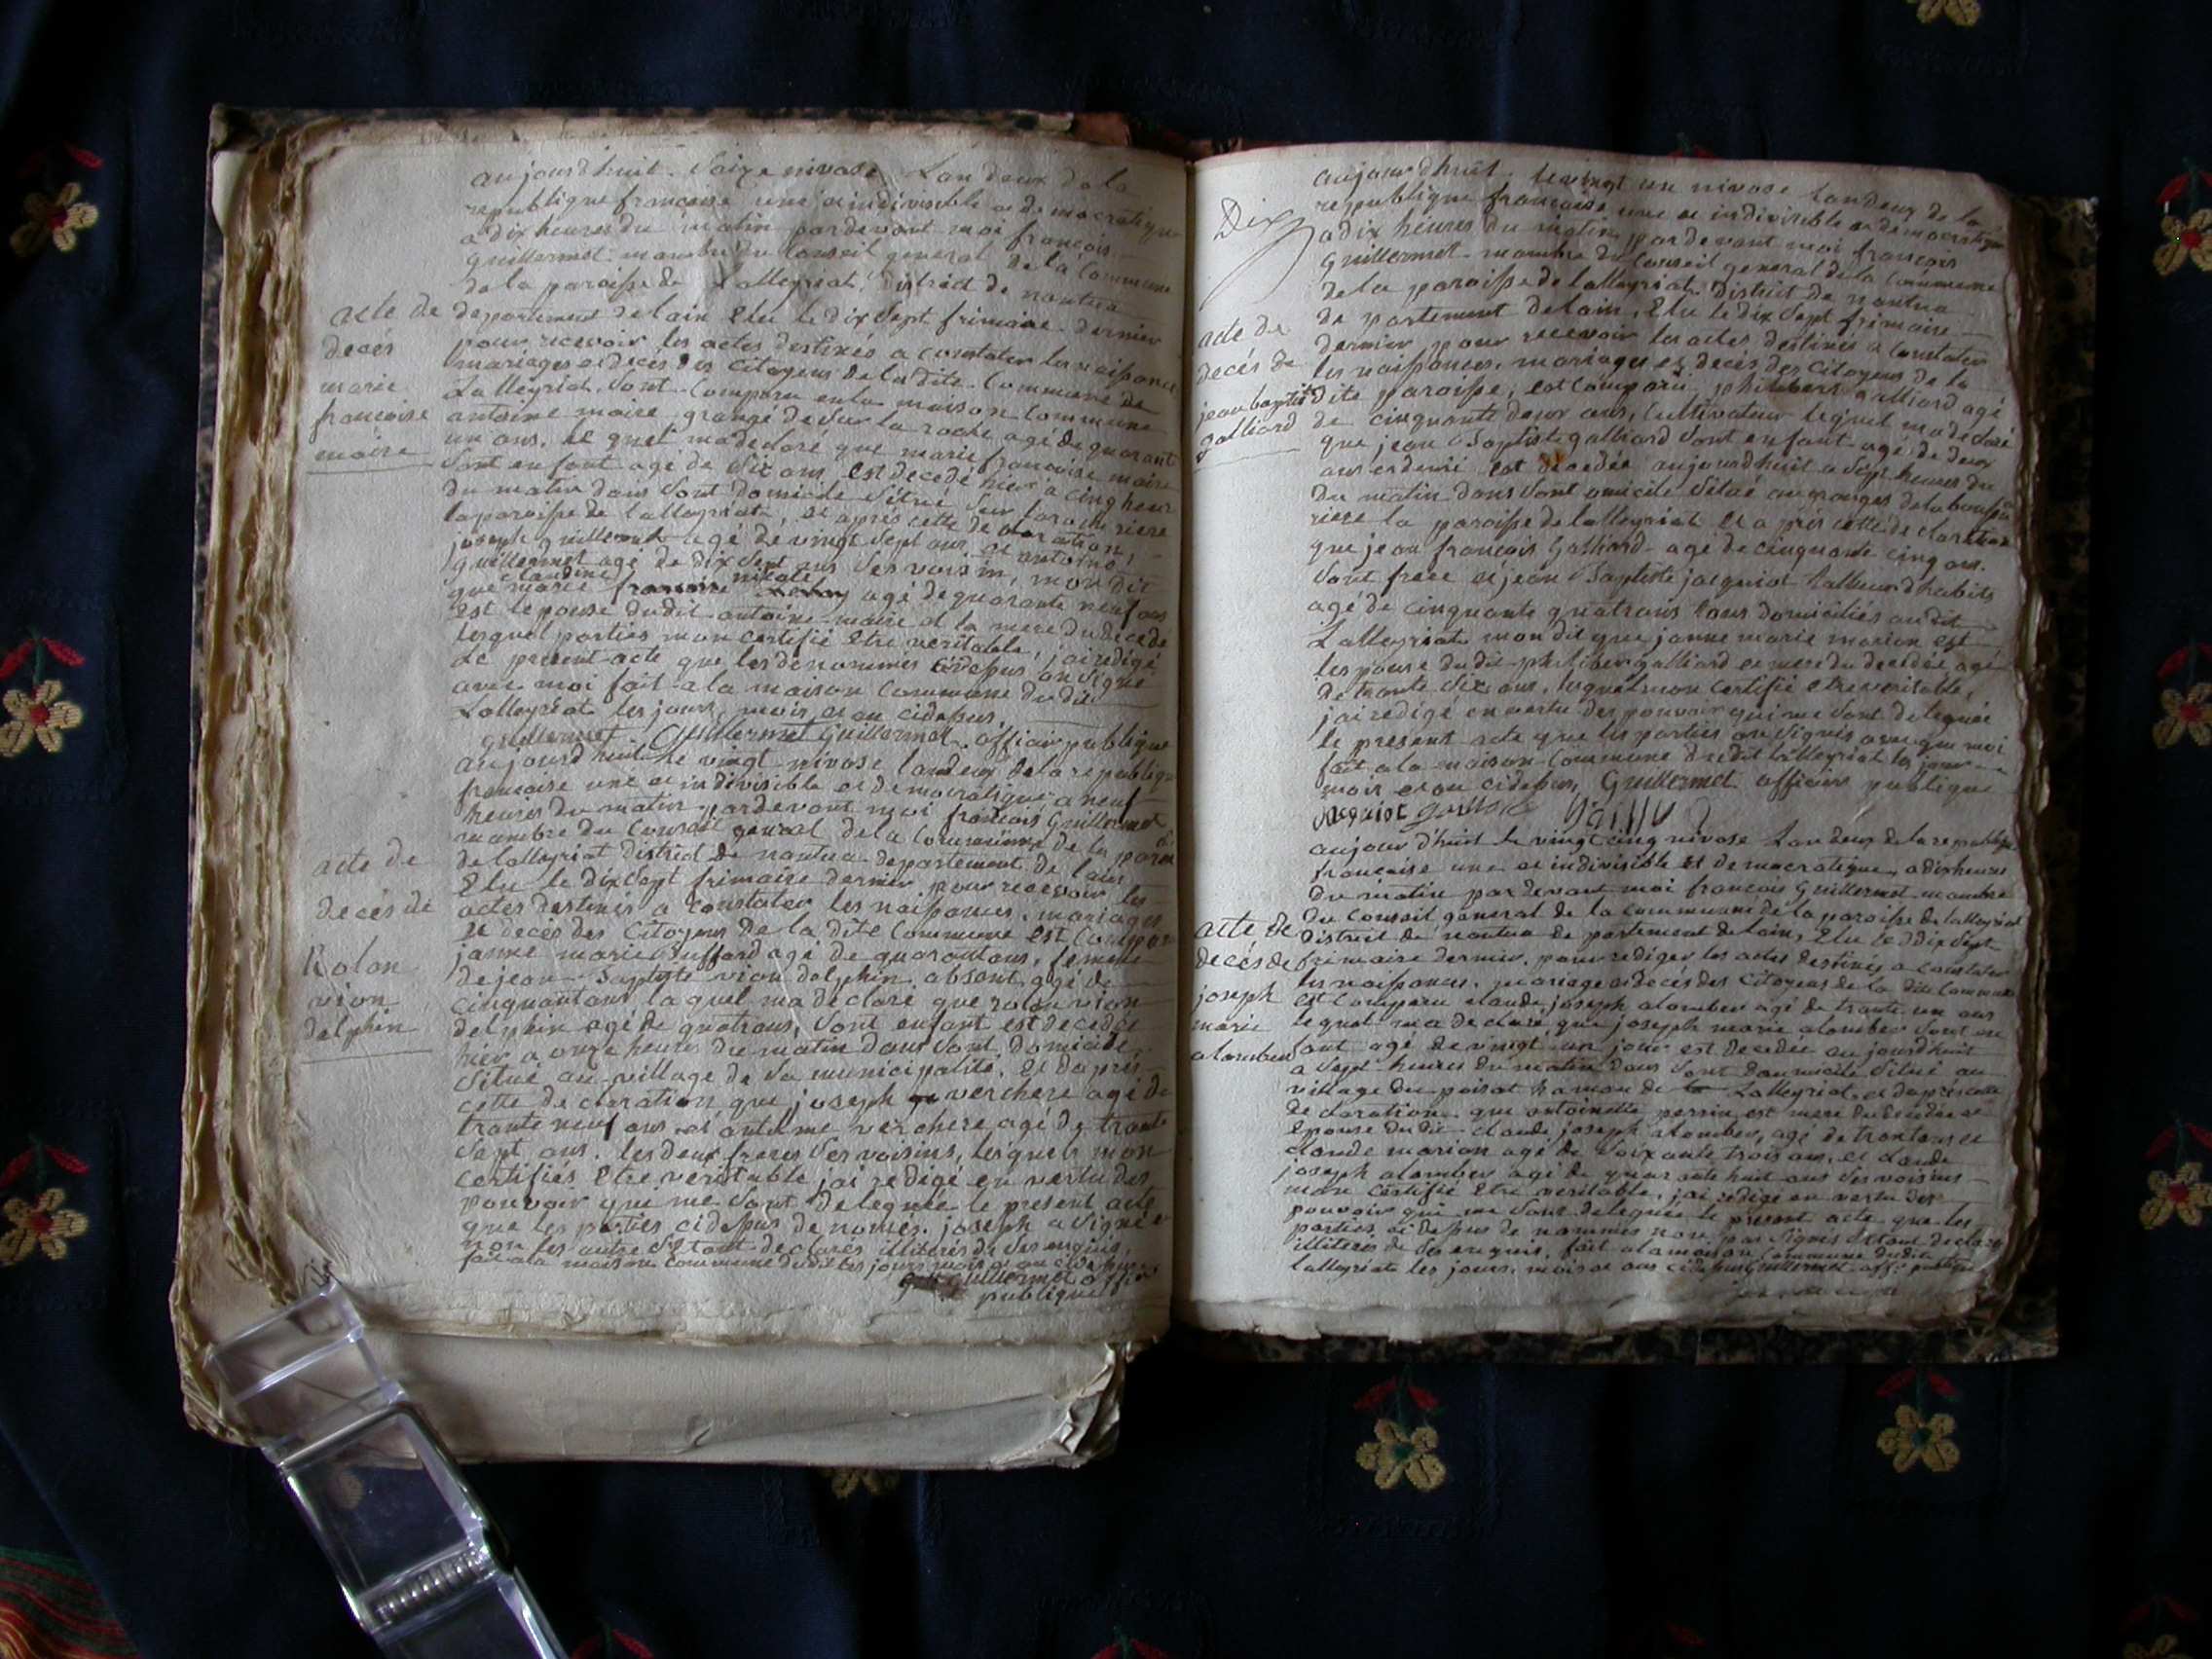 aujourdhuit Saize nivose Lan deux de la
republique francaise une et indivisible et democratique
a dix heures du matin pardevant moi francois
guillermet mambre du Conseil general de la Commune
de la paroisse de Lalleyriat, district de nantua
acte de
decés
marie
francoise
maire
departement de lain Elu le dix Sept frimaire dernier
pour recevoir les actes destinés a constater les naissances
mariages et decés des Citoyens de la dite Commune de
Lalleyriat. Sont Comparu en la maison Commune
antoine maire grangé de Sur la roche agé de quarant
un ans, le quel ma declaré que marie francoise maire
Sont enfant agé de dix ans est decedé hier a cinq heur
du matin dans Sont domicile Situé Sur la roche riere
la paroisse de lalleyriat, et aprés cette declaration,
joseph guillermet agé de vingt Sept ans, et antoine
guillermet agé de dix Sept ans Ses voisin, mon dit
que marie claudine agé de quarante neuf ans
est lepouse dudit antoine maire et la mere du decedé
lesquel parties mon certifié Etre veritable, jai redigé
Le present acte que les denommés cidessus on Signé
avec moi fait a la maison Commune dudit
Lalleyriat les jours, mois et an cidessus.
guillermet Guillermet Guillermet officier publique
aujourdhuit le vingt nivose landeux de la republique
francaise une et indivisible et democratique a neuf
heures du matin pardevant moi francois Guillermet
mambre du Conseil general de la Commune de la paroi
acte de
decés de
Rolan
vion
delphin
de lalleyriat district de nantua departement de lain
Elu le dix Sept frimaire dernier pour recevoir les
actes destinés a constater les naissances, mariages
et decés des Citoyens de la dite Commune est Comparu
janne marie Buffard agé de quarantans, femme
de jean Baptiste vion delphin absent agé de
cinquantans laquel ma declaré que rolan vion
delphin agé de quatrans, Sont enfant est decedée
hier a onze heures du matin dans Sont domicile,
Situé au village de Sa municipalité. Et daprés
cette declaration que joseph verchere agé de
trante neuf ans et antelme verchere agé de trante
Sept ans. les deux freres Ses voisins, lesquels mon
certifiés Etre veritable jai redigé en vertu des
pouvoir que me Sont deleguée le present acte
que les parties cidessus denomés. joseph a Signé et
non les autre S'etant declarés illiterés de Ses enquis,
fait a la maison commune dudit les jours mois et an cidessus
guillermet offici
publique
Dix
aujourdhuit le vingt un nivose Lan deux de la
republique francaise une et indivisible et democratique
a dix heures du matin pardevant moi francois
Guillermet mambre du Conseil general de la Commune
de la paroisse de lalleyriat District de nantua
acte de
decés de
jean baptiste
galliard
departement de lain, Elu le dix Sept frimaire
dernier pour recevoir les actes destinés a Constater
les naissances, mariages et decés des Citoyens de la
dite paroisse, est Comparu philibert galliard agé
de cinquante deux ans, Cultivateur lequel ma declaré
que jean Baptiste galliard Sont enfant agé de deux
ans et demi est decedée aujourdhuit a Sept heures du
du matin dans Sont omicile Situé au granges de
riere la paroisse de lalleyriat Et apris cette declaration
que jean francois Galliard agé de cinquante cinq ans.
Sont frere et jean Baptiste jacquiot tallieur dhabits
agé de cinquante quatrans tous domiciliés audit
Lalleyriat mon dit que janne marie marion est
lespouse dudit philiber galliard et mere du decedée agé
de trante Six ans, lesquel mon certifié etre veritable,
jai redigé en vertu des pouvoir qui me Sont deleguée
le present acte que les parties on Signés avec que moi
fait a la maison Commune dudit lalleyriat les jour
mois et an cidessus, Guillermet officier publique
Jacquiot
aujourdhuit le vingt cinq nivose Lan deux de la republique
francaise une et indivisible et democratique, a dix heures
du matin par devant moi francois Guillermet mambre
acte de
decés de
joseph
marie
alomber
du Conseil general de la commune de la paroisse de lalleyriat
District de nantua departement de lain, Elu le dix Sept
frimaire dernier, pour rediger les actes destinés a constater
les naissances, mariage et decés des Citoyens de la dite Commune
est Comparu claude joseph alomber agé de trante un ans
lequel ma declaré que joseph marie alomber Sont en
fant agé de vingt un jour est decedée aujourdhuit
a Sept heures du matin dans Sont domicile Situé au
village du poisat hamau de Lalleyriat, et daprés cette
declaration que antoinette perrin est mere du decedée et
Epouse dudit claude joseph alomber, agé de trantans et
claude marion agé de Soixante trois ans, et claude
joseph alomber agé de quarante huit ans Ses voisins
mon certifié Etre veritable, jai redigé en vertu des
pouvoir qui me Sont deleguée le present acte que les
parties ci dessus denommés non pas Signés S'etant declaré
illiterés de Ses enquis, fait a la maison Commune dudit
lalleyriat les jours, mois et ans cidessus Guillermet offi publique